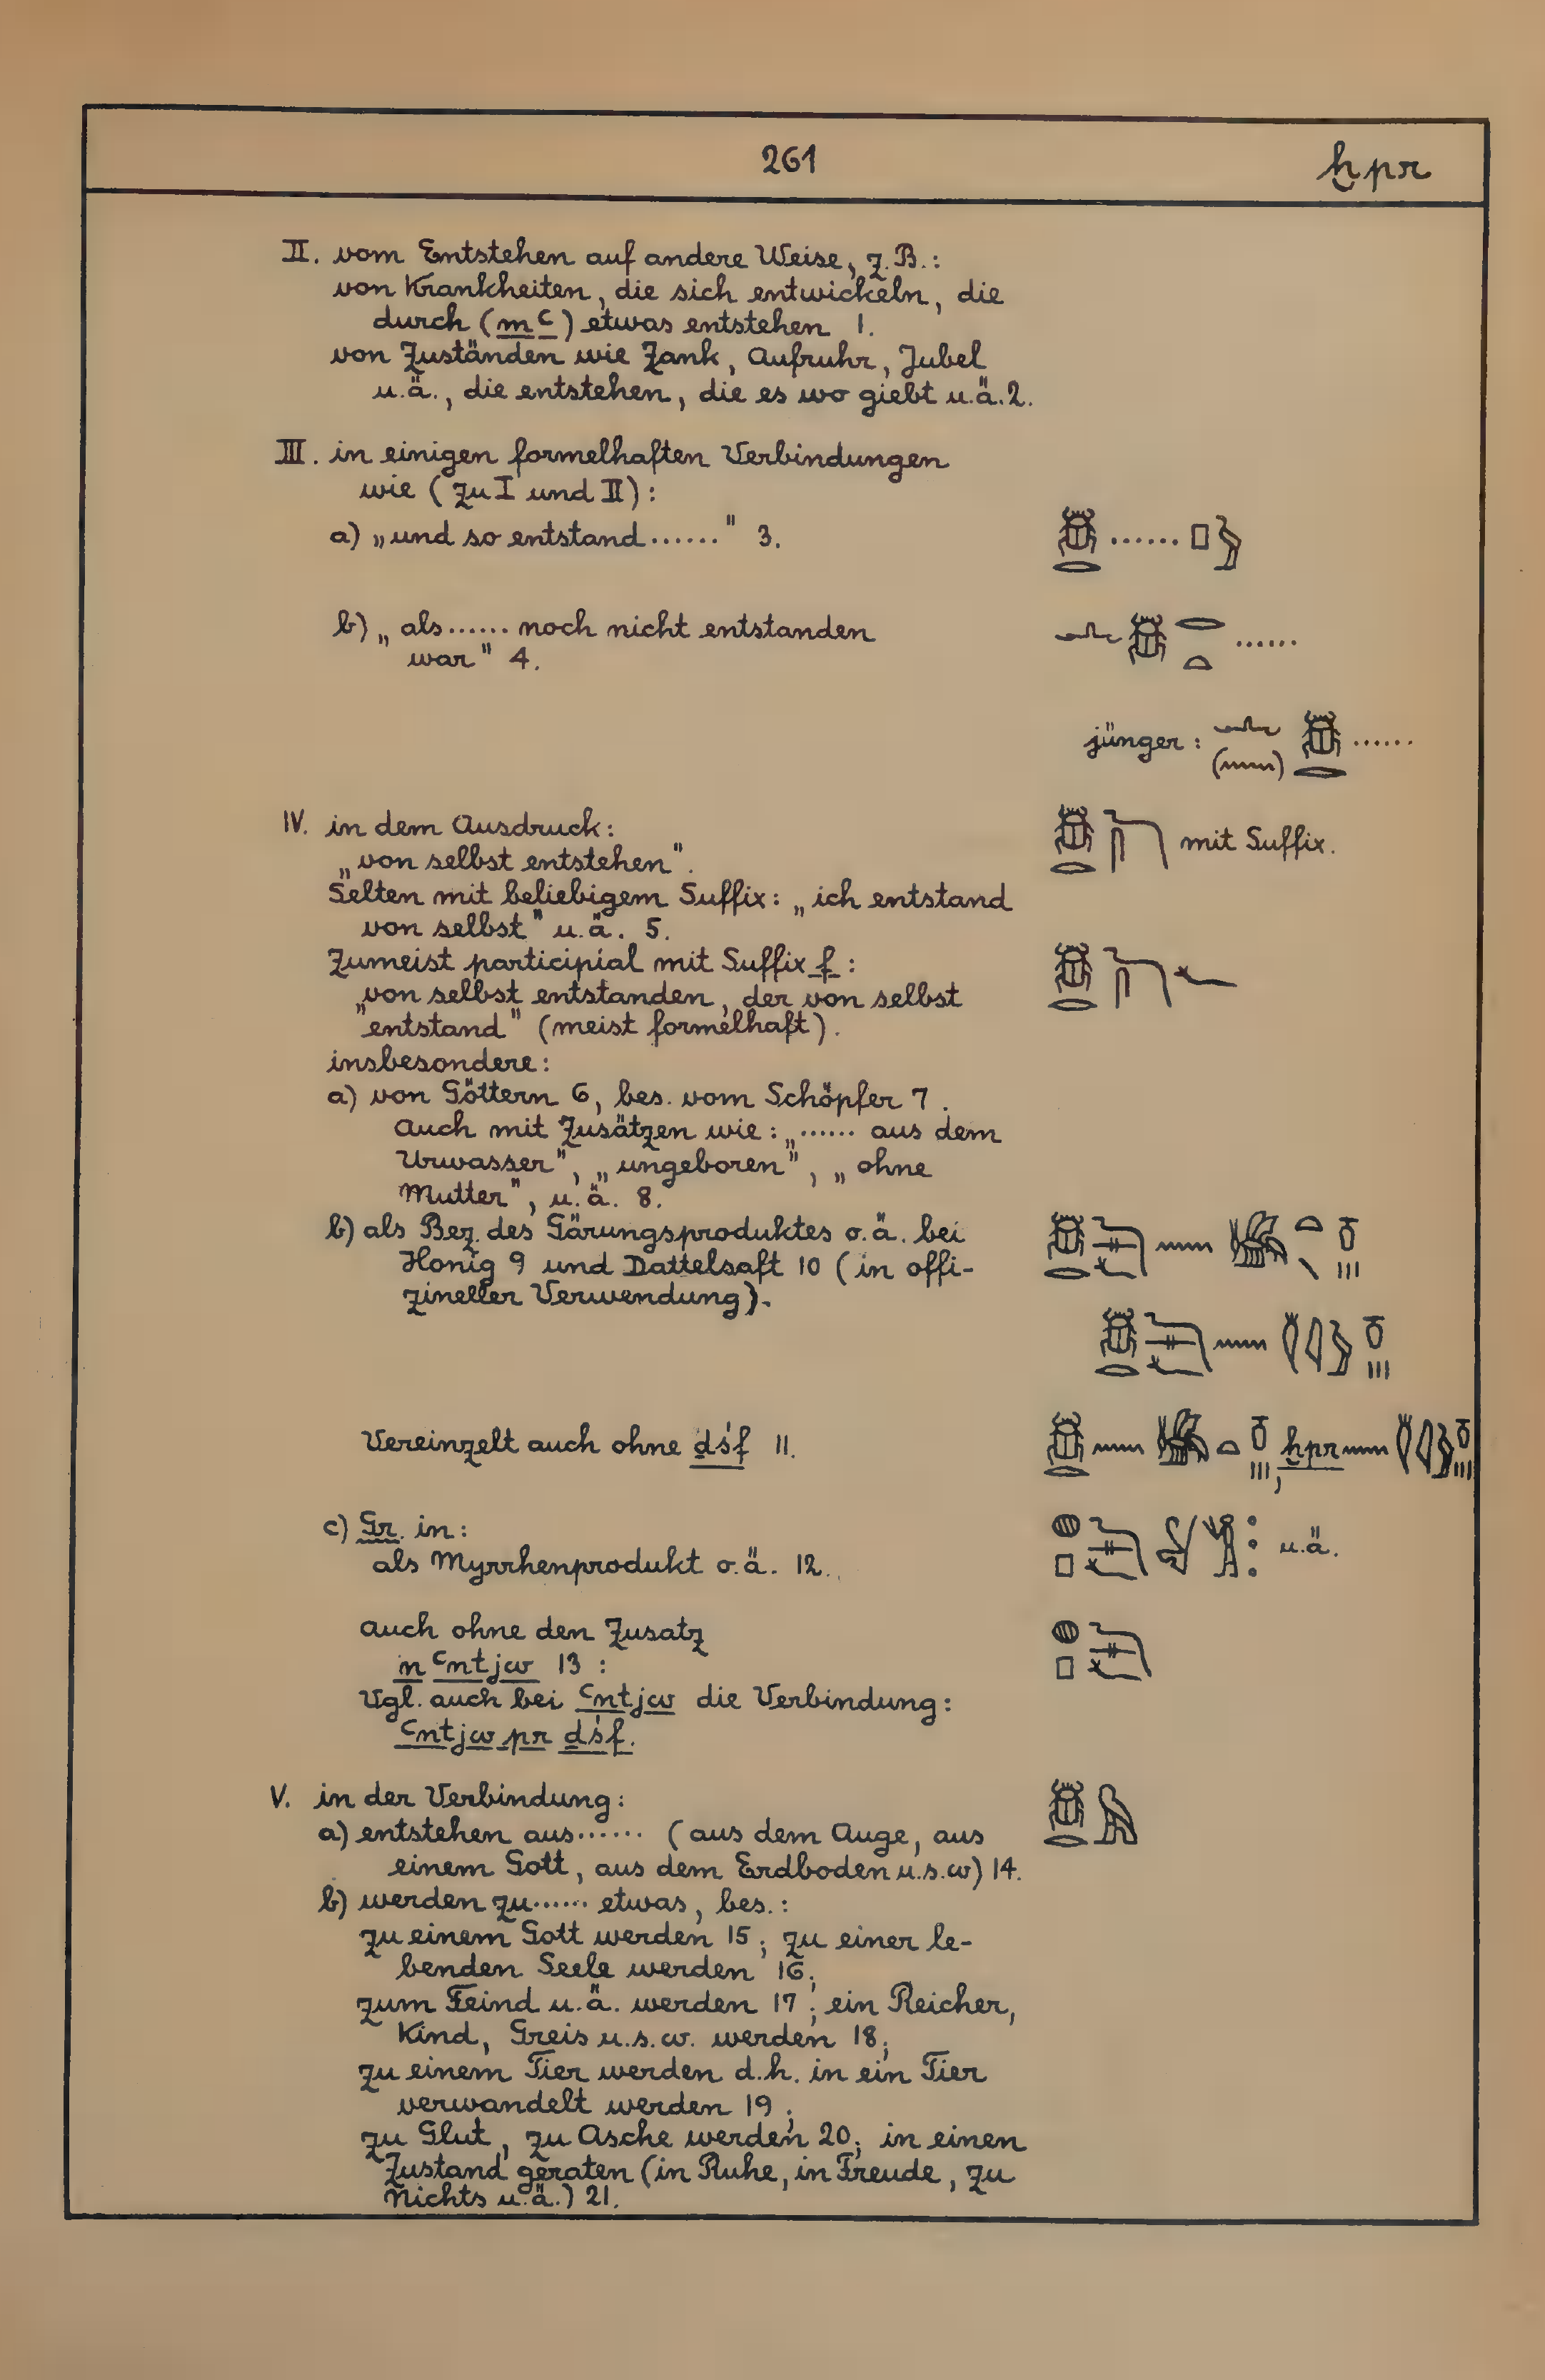 261
ḫpr
II. vom Entstehen auf andere Weise, z.B.:
von Krankheiten, die sich entwickeln, die
durch (m ꜥ) etwas entstehen 1.
von Zuständen wie Zank, Aufruhr, Jubel
u.ä., die entstehen, die es wo giebt u.ä. 2.
III. in einigen formelhaften Verbindungen
wie (zu I und II):
a) „und so entstand......" 3. 𓆣𓂋 ...... 𓊪𓅱
b) „als...... noch nicht entstanden 𓂜𓆣𓂋𓏏 ......
war" 4.
jünger: 𓂜(𓈖)𓆣𓂋 ......
IV. in dem Ausdruck: 𓆣𓂋𓋴𓆓 mit Suffix.
„von selbst entstehen".
Selten mit beliebigem Suffix: „ich entstand
von selbst" u.ä. 5.
Zumeist participial mit Suffix f: 𓆣𓂋𓆓𓋴𓆑
„von selbst entstanden, der von selbst
entstand" (meist formelhaft).
insbesondere:
a) von Göttern 6, bes. vom Schöpfer 7.
Auch mit Zusätzen wie: „...... aus dem
Urwasser", „ungeboren", „ohne
Mutter", u.ä. 8.
b) als Bez. des Gärungsproduktes o.ä. bei
Honig 9 und Dattelsaft 10 (in offi-
zineller Verwendung).
Vereinzelt auch ohne ḏśf 11. , ḫpr
c) Gr. in: u.ä.
als Myrrhenprodukt o.ä. 12.
Auch ohne den Zusatz
n ꜥntjw 13:
Vgl. auch bei ꜥntjw die Verbindung:
ꜥntjw pr ḏśf.
V. in der Verbindung: 𓆣𓂋𓅓
a) entstehen aus...... (aus dem Auge, aus
einem Gott, aus dem Erdboden u.s.w) 14.
b) werden zu...... etwas, bes.:
zu einem Gott werden 15; zu einer le-
benden Seele werden 16;
zum Feind u.ä. werden 17; ein Reicher,
Kind, Greis u.s.w. werden 18;
zu einem Tier werden d.h. in ein Tier
verwandelt werden 19;
zu Glut, zu Asche werden 20; in einen
Zustand geraten (in Ruhe, in Freude, zu
Nichts u.ä.) 21.